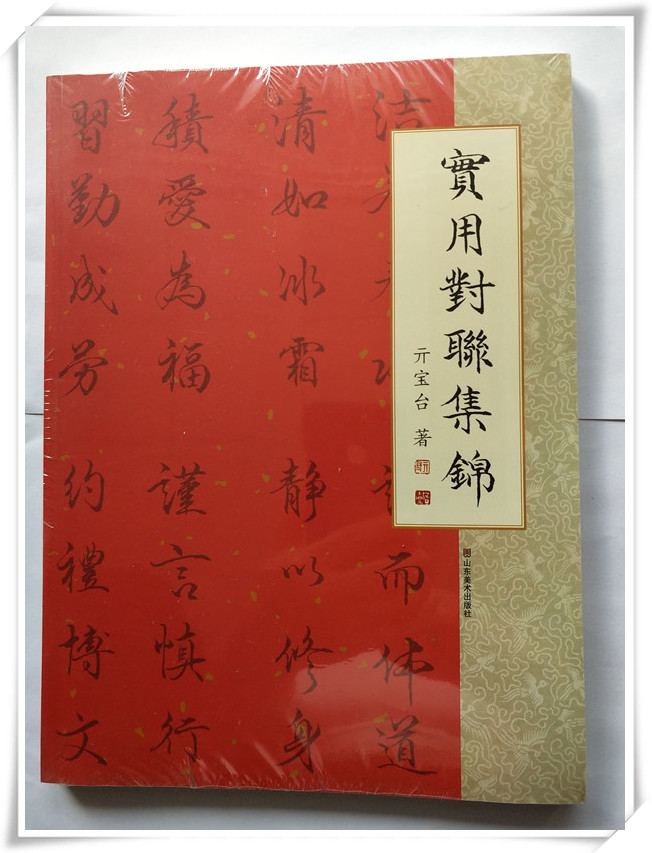 實用對聯集錦
亓宝台 著
山东美术出版社
洁 而体道
清如冰霜 静以修身
積愛為福 謹言慎行
習勤成劳 約禮博文